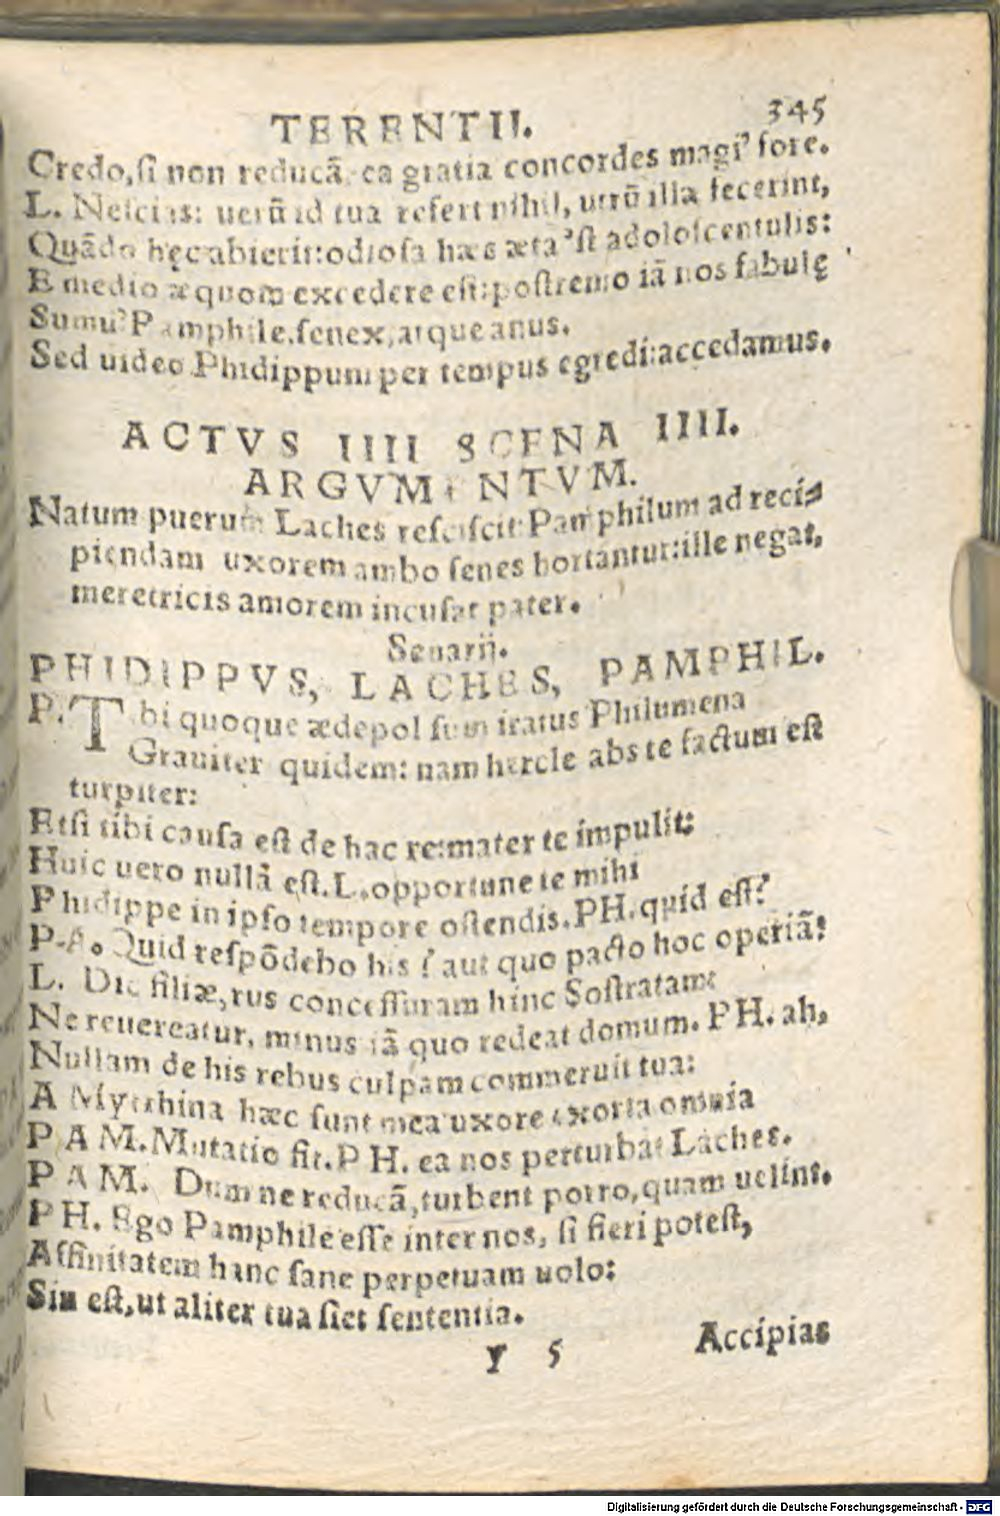 TERENTII. 345
Credo,ſi non reducã. ea gratia concordes magiꝰ fore.
L. Neſcias: uerũ id tua refert nihil, utrũ illa fecerint,
Quãdo hęc abierit: odioſa hæc ætaꝰſt adoloſcentulis:
E medio æquom excedere eſt: poſtremo iã nos fabulę
Sumuꝰ Pamphile.ſenex, atque anus.
Sed uideo Phidippum per tempus egredi: accedamus.
ACTVS IIII SCENA IIII.
ARGVMENTVM.
Natum puerum Laches reſciſcit: Pamphilum ad reci⸗
piendam uxorem ambo ſenes hortantur: ille negat,
meretricis amorem incuſat pater.
Senarij.
PHIDIPPVS, LACHES, PAMPHIL.
P. Tibi quoque ædepol ſum iratus Philumena
Grauiter quidem: nam hercle abs te factum eſt
turpiter:
Etſi tibi cauſa eſt de hac re: mater te impulit:
Huic uero nullã eſt. L. opportune te mihi
Phidippe in ipſo tempore oſtendis. PH. quid eſt?
PA. Quid reſpõdebo his ? aut quo pacto hoc operiã?
L. Dic filiæ, rus conceſſuram hinc Soſtratam:
Ne reuereatur, minus iã quo redeat domum. PH. ah,
Nullam de his rebus culpam commeruit tua:
A Myrrhina hæc ſunt mea uxore exorta omnia
PAM. Mutatio fit. PH. ea nos perturbat Laches.
PAM. Dum ne reducã, turbent porro, quam uelint.
PH. Ego Pamphile eſſe inter nos, ſi fieri poteſt,
Affinitatem hanc ſane perpetuam uolo:
Sin eſt, ut aliter tua ſiet ſententia.
y 5 Accipias
Digitalisierung gefördert durch die Deutsche Forschungsgemeinschaft - DFG